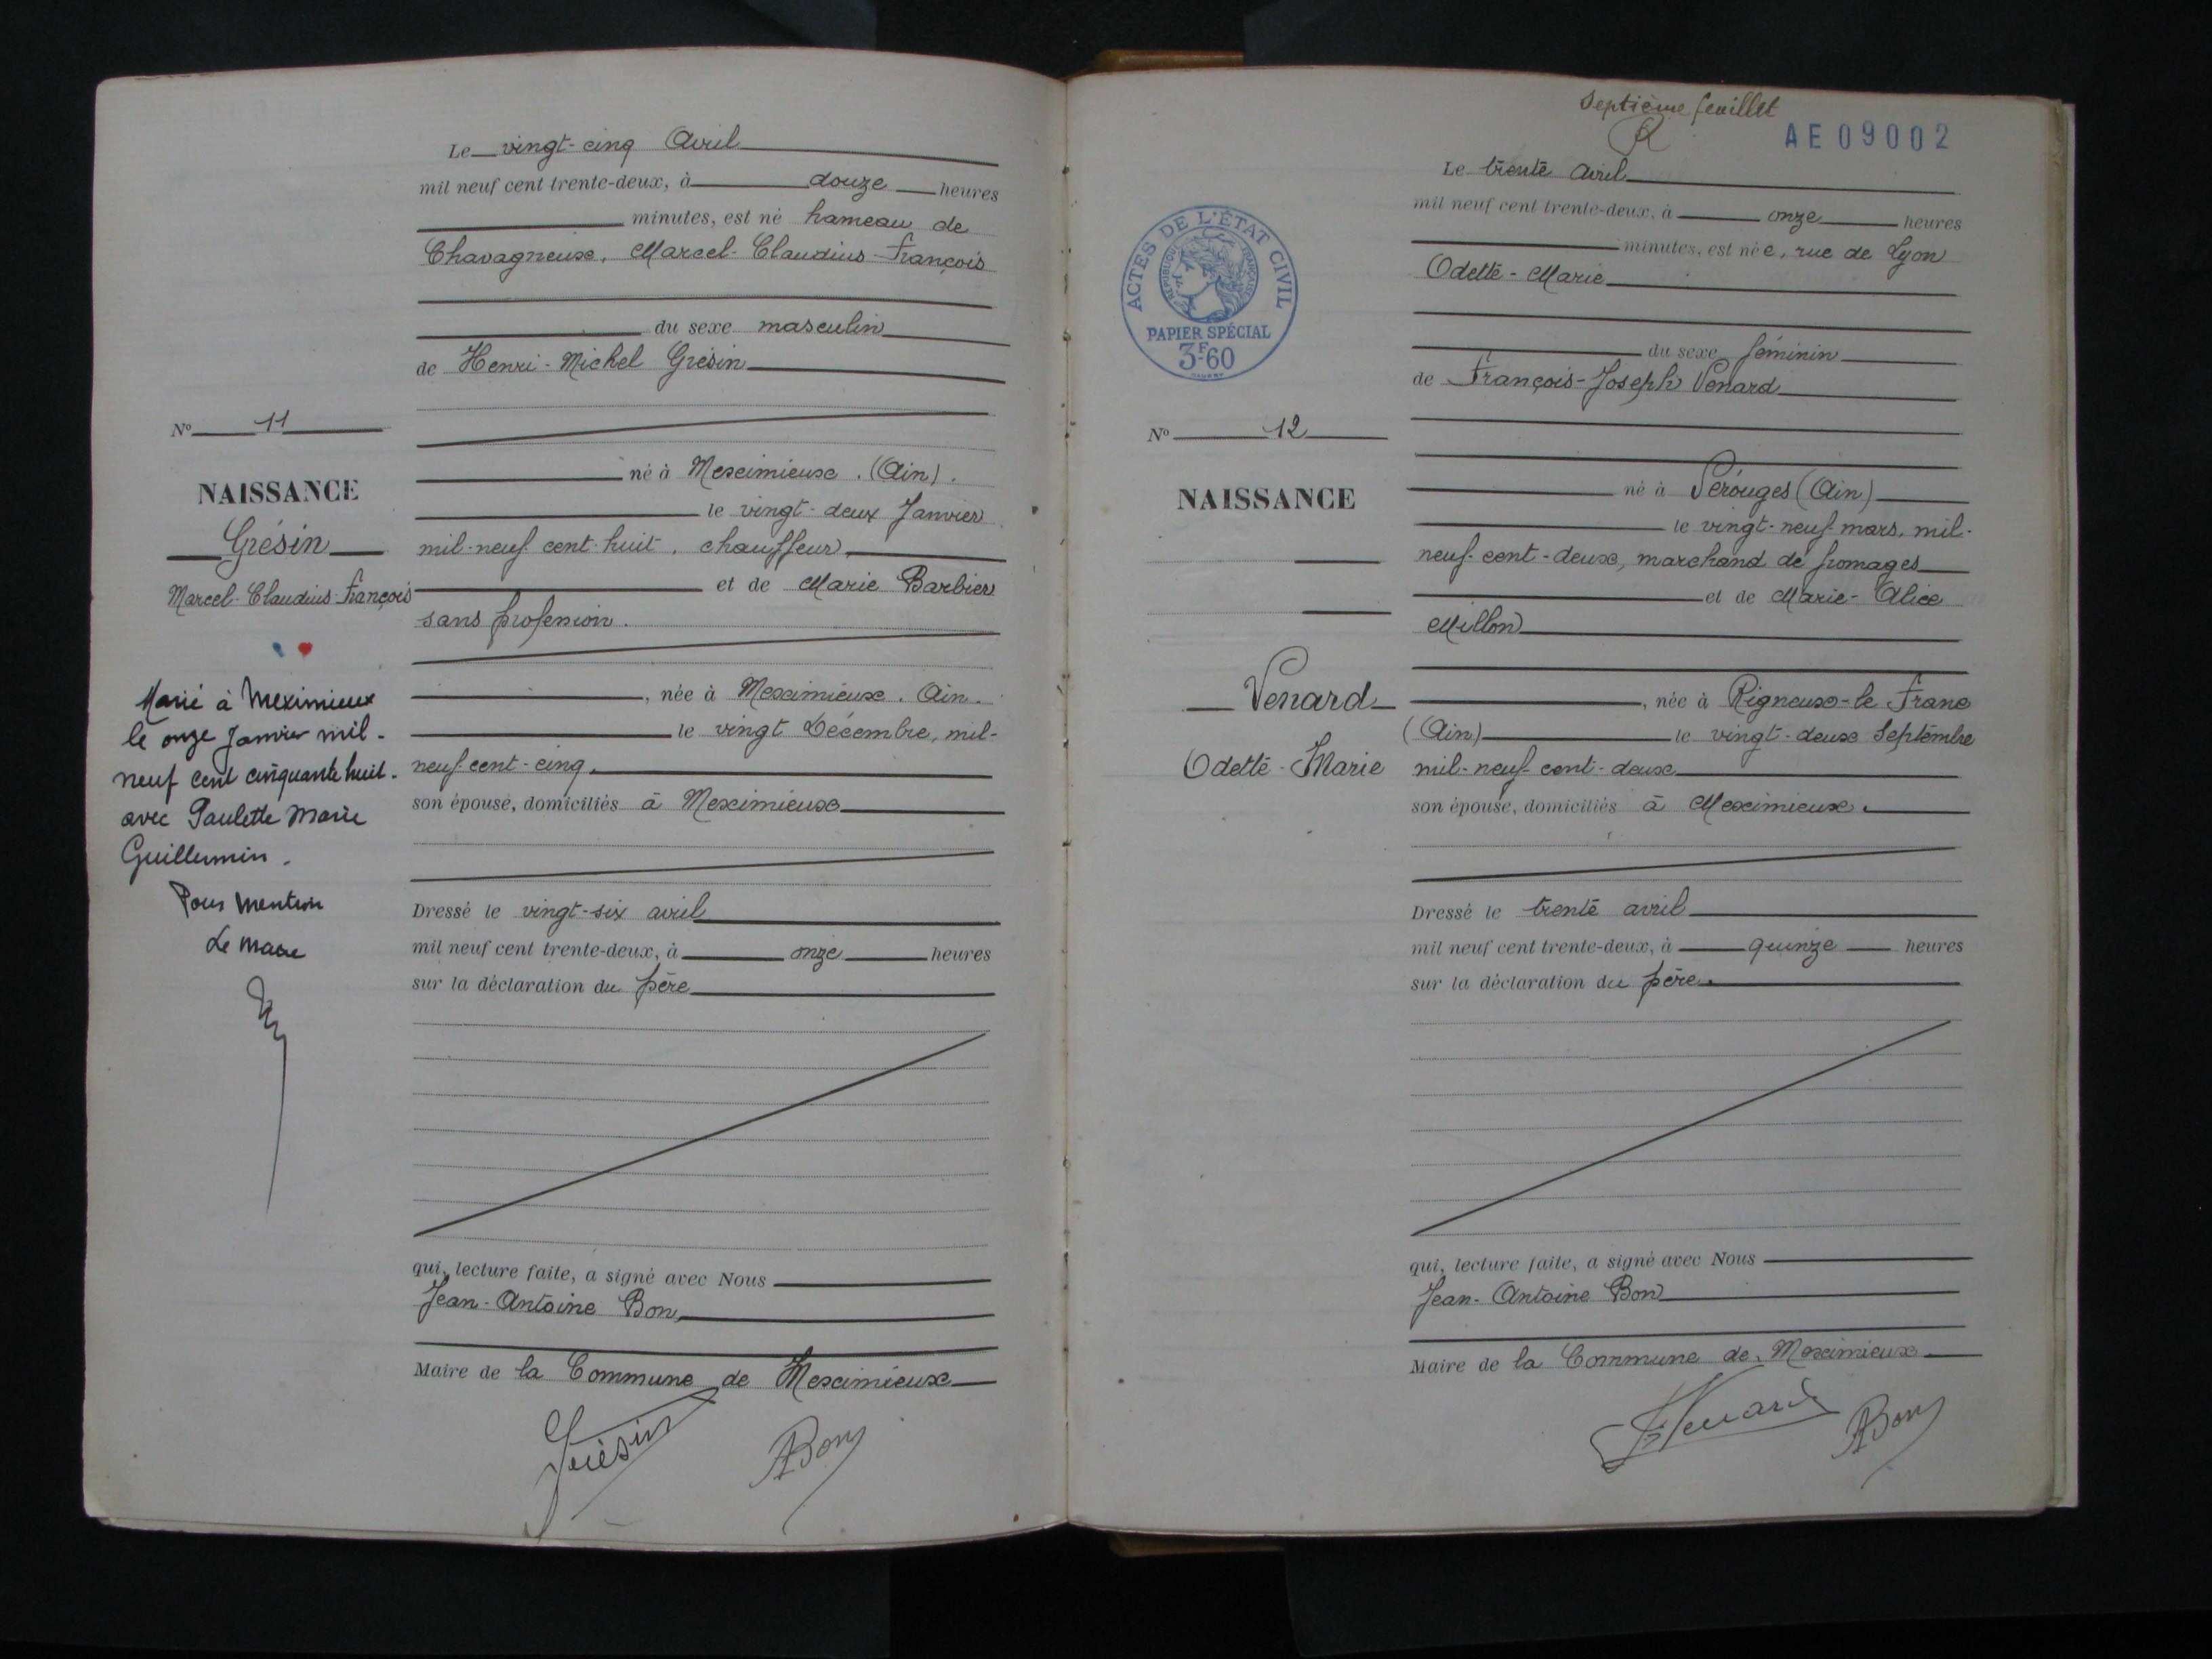 Le vingt-cinq Avril
mil neuf cent trente-deux, à douze heures
minutes, est né hameau de
Chavagneux, Marcel-Claudius-François
du sexe masculin
de Henri-Michel Grésin
né à Meximieux. (Ain).
le vingt-deux Janvier
mil-neuf cent-huit, chauffeur,
et de Marie Barbier
sans profession.
, née à Meximieux. Ain.
le vingt Décembre, mil-
neuf-cent-cinq,
son épouse, domiciliés à Meximieux
Dressé le vingt-six avril
mil neuf cent trente-deux, à onze heures
sur la déclaration du père
qui, lecture faite, a signé avec Nous
Jean-Antoine Bon,
Maire de la Commune de Meximieux
Grésin
ABon
No 11
NAISSANCE
Grésin
Marcel-Claudius-François
Marié à Meximieux
le onze Janvier mil-
neuf cent cinquante huit.
avec Paulette Marie
Guillemin.
Pour mention
Le maire
Septième feuillet
AE09002
Le trente avril
mil neuf cent trente-deux, à onze heures
minutes, est née, rue de Lyon
Odette-Marie
du sexe féminin
de François-Joseph Venard
né à Pérouges (Ain)
le vingt-neuf mars, mil-
neuf-cent-deux, marchand de fromages
et de Marie-Alice
Millon
, née à Rigneux-le Franc
(Ain) le vingt-deux Septembre
mil-neuf-cent-deux
son épouse, domiciliés à Meximieux.
Dressé le trente avril
mil neuf cent trente-deux, à quinze heures
sur la déclaration du père.
qui, lecture faite, a signé avec Nous
Jean-Antoine Bon
Maire de la Commune de Meximieux
Venard
ABon
ACTES DE L'ÉTAT CIVIL
RÉPUBLIQUE FRANÇAISE
PAPIER SPÉCIAL
3F60
No 12
NAISSANCE
Venard
Odette-Marie